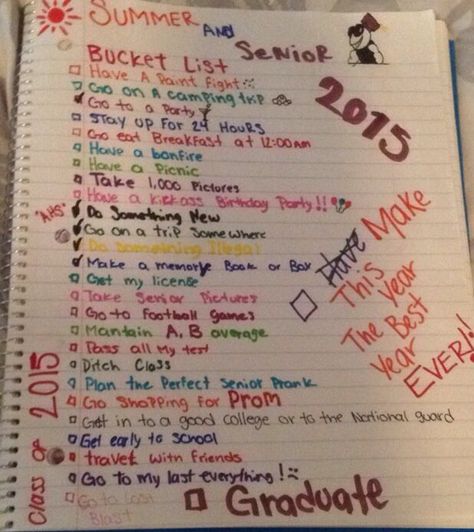 SUMMER
AND
SENIOR
BUCKET LIST
2015
Have A Paint fight
Go on A camping trip
Go to a Party
STAY UP FOR 24 HOURS
Go eat Breakfast at 12:00am
Have a bonfire
Have a Picnic
Take 1,000 Pictures
Have a kickass Birthday Party!!
"AHS"
Do Something New
Go on a trip Somewhere
Do something Illegal
Make a memorye Book or Box
Get my license
Take Senior Pictures
Go to Football games
Mantain A, B average
Pass all My test
Ditch Class
Plan the Perfect Senior Prank
Go Shopping for Prom
Get in to a good college or to the National guard
Get early to school
travel with friends
Go to my last everything!
Go to Last
Blast
Graduate
Have Make
This year
The Best
Year
EVER!
Class of 2015